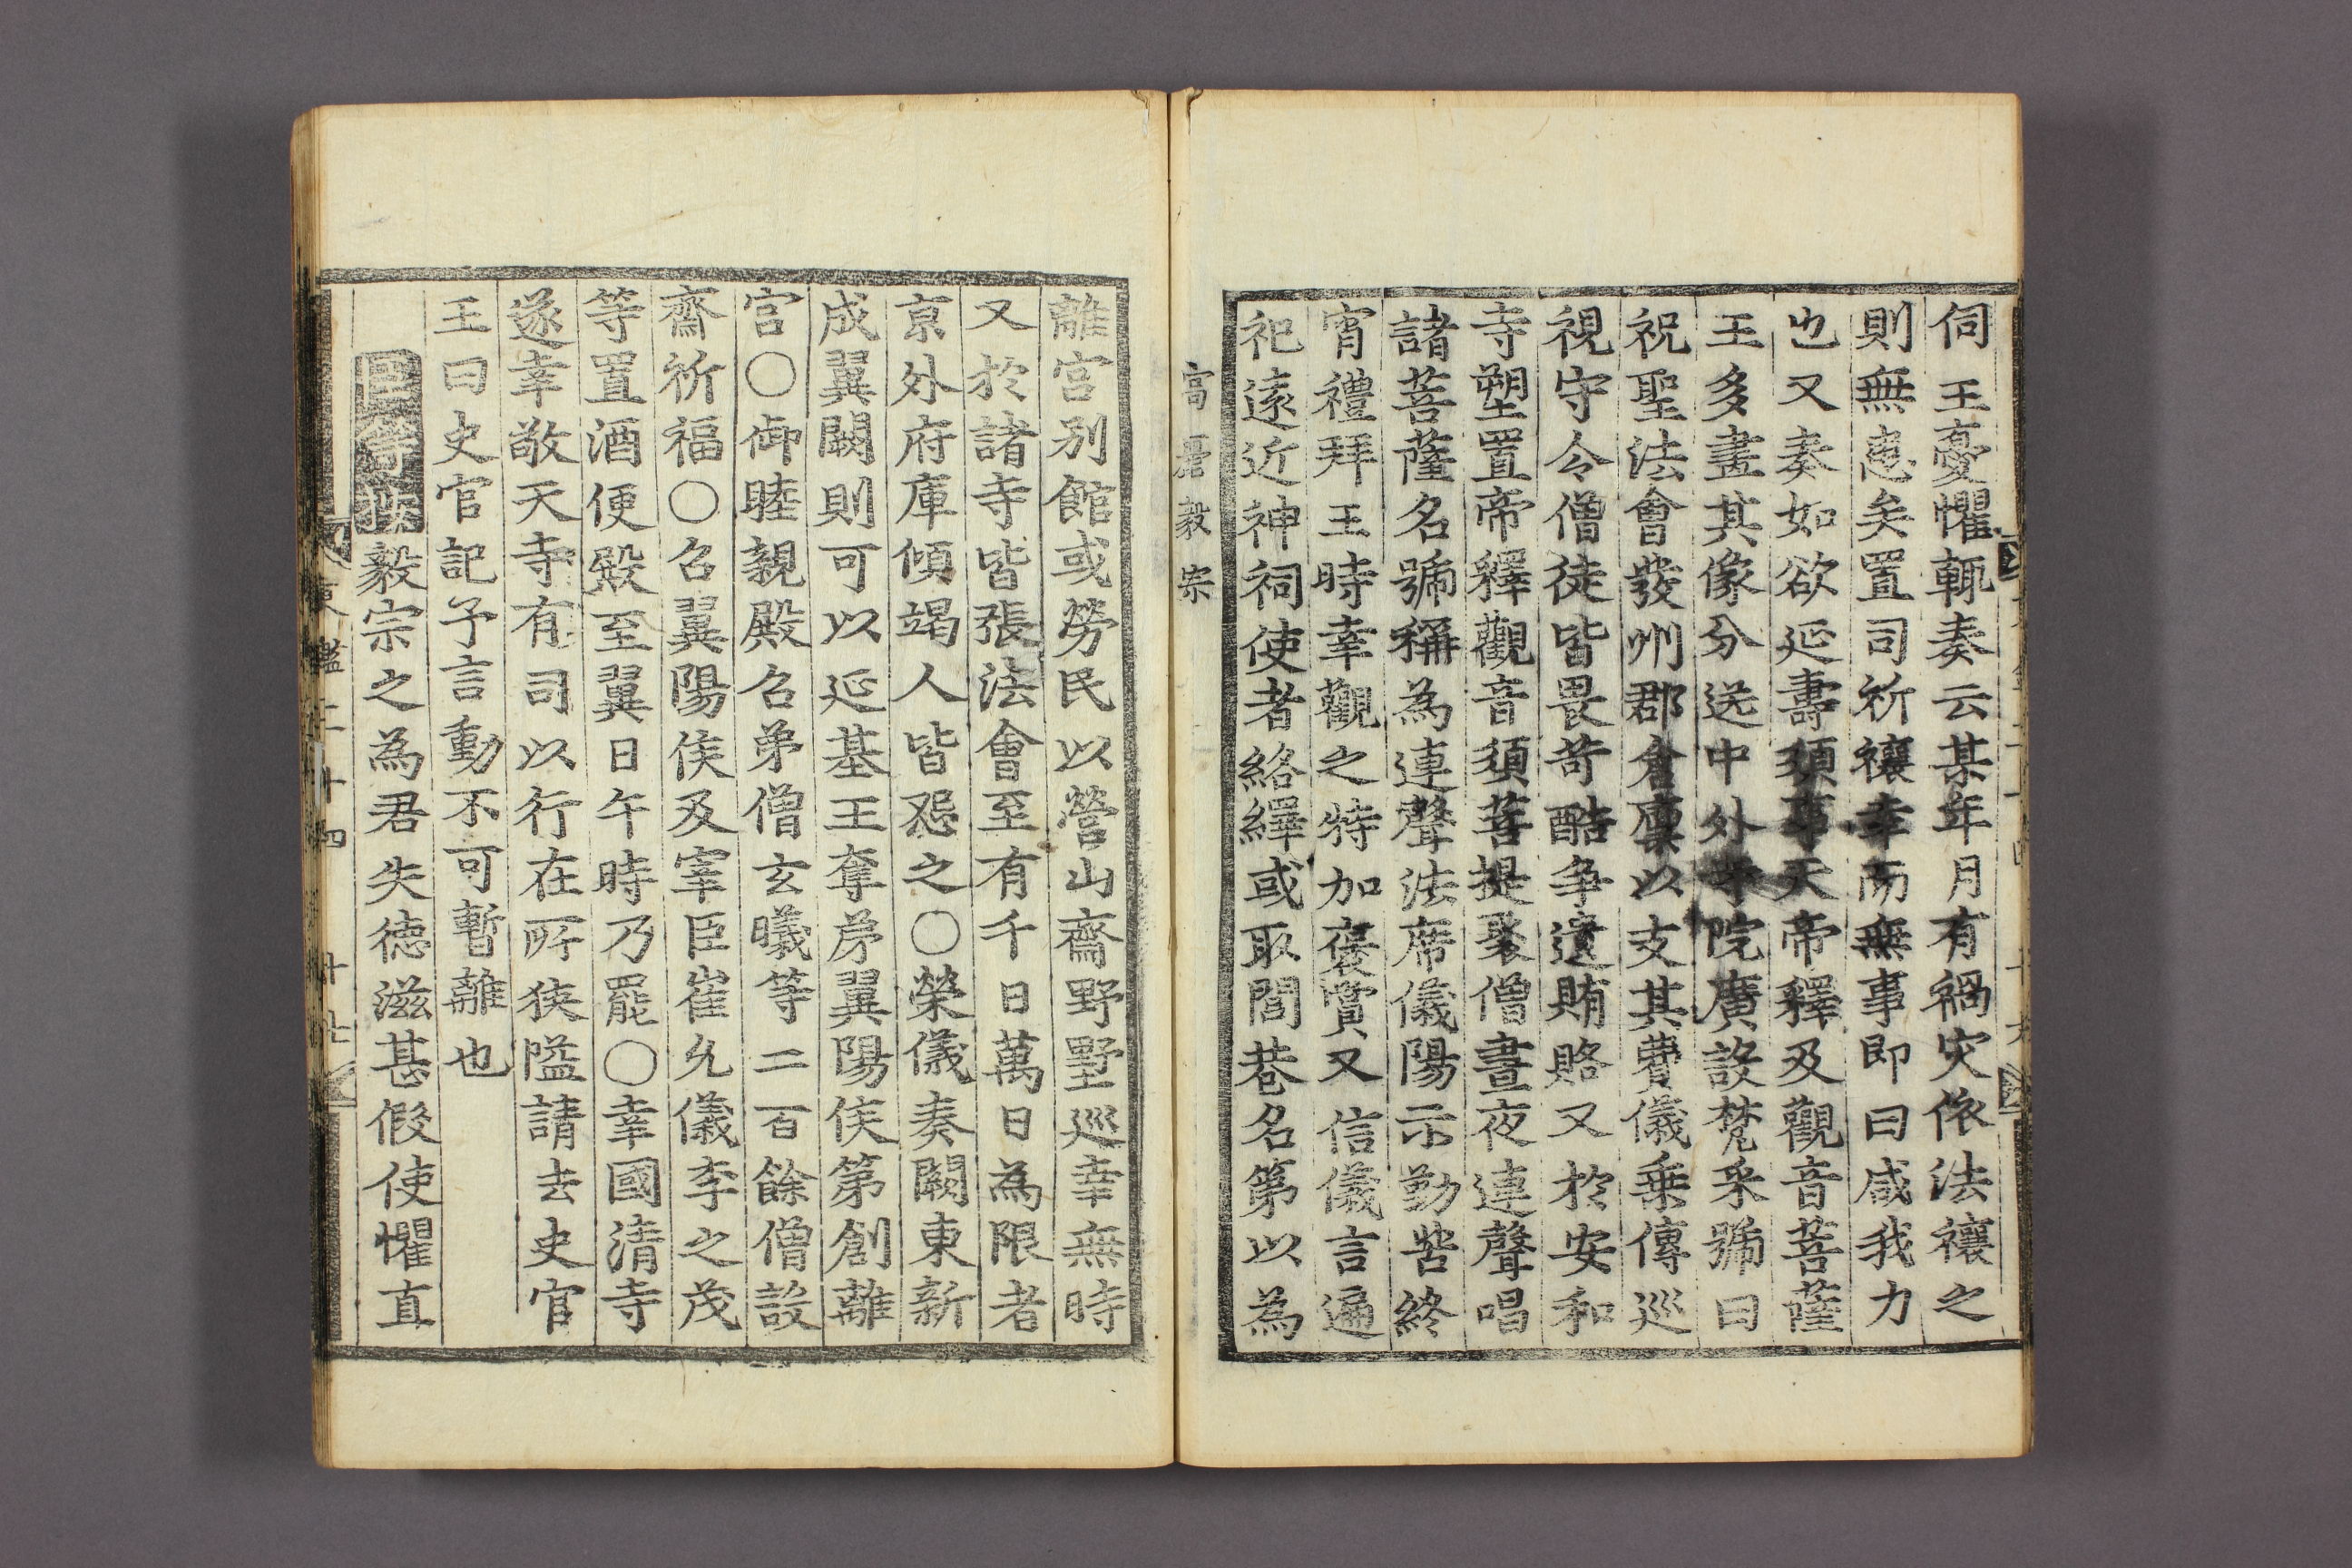 伺王憂懼輒奏云某年月有禍灾依法禳之
則無患矣置司祈禳幸而無事即曰咸我力
也又奏如欲延壽須事天帝釋及觀音菩薩
王多畫其像分送中外寺院廣設梵采號曰
祝聖法會發州郡倉廩以支其費儀乗傳巡
視守令僧徒皆畏苛酷爭遺賄賂又於安和
寺塑置帝釋觀音須菩提聚僧晝夜連聲唱
諸菩薩名號稱為連聲法席儀陽示勤苦終
宵禮拜王時幸觀之特加褒賞又信儀言遍
祀遠近神祠使者絡繹或取閭巷名第以為
高麗毅宗
離宮別館或勞民以營山齋野墅巡幸無時
又於諸寺皆張法會至有千日萬日為限者
京外府庫傾竭人皆怨之〇榮儀奏闕東新
成翼闕則可以延基王奪弟翼陽侯第創離
宮〇御睦親殿召弟僧玄曦等二百餘僧設
齋祈福〇召翼陽侯及宰臣崔允儀李之茂
等置酒便殿至翼日午時乃罷〇幸國清寺
遂幸敬天寺有司以行在所狹隘請去史官
王曰史官記予言動不可暫離也
臣等按毅宗之為君失德滋甚假使懼直
東鑑二十四 十七